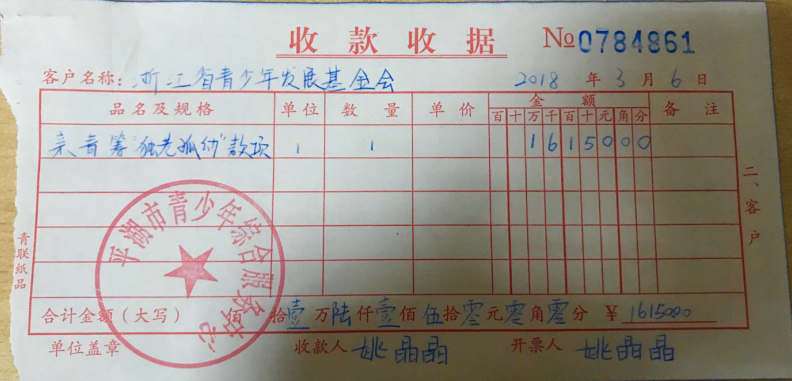 收款收据 №0784861
客户名称：浙江省青少年发展基金会 2018 年 3 月 6 日
品名及规格 单位 数量 单价 金额 备注
百 十 万 千 百 十 元 角 分
亲青筹“独老孤幼”款项 1 1 1 6 1 5 0 0 0
二、客户
青联纸品
平湖市青少年综合服务中心
合计金额（大写） 佰 拾壹万陆仟壹佰伍拾零元零角零分 ￥ 1615000
单位盖章 收款人 姚晶晶 开票人 姚晶晶